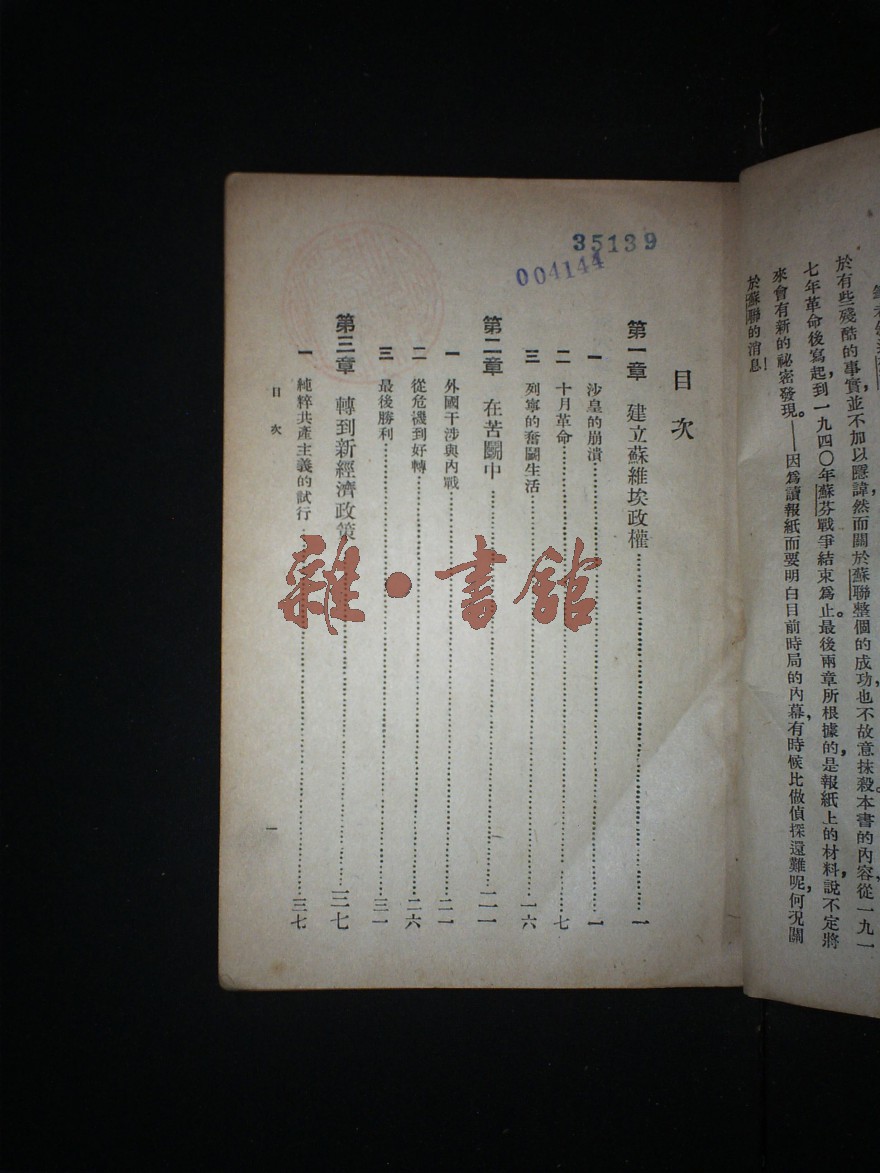 於有些殘酷的事實並不加以隱諱，然而關於蘇聯整個的成功，也不故意抹殺。本書的內容，從一九一
七年革命後寫起，到一九四〇年蘇芬戰爭結束爲止。最後兩章所根據的，是報紙上的材料，說不定將
來會有新的祕密發現。——因爲讀報紙而要明白目前時局的內幕，有時候比做偵探還難呢，何況關
於蘇聯的消息！
35139
004144
目次
第一章　建立蘇維埃政權……一
一　沙皇的崩潰……一
二　十月革命……七
三　列寧的奮鬭生活……一六
第二章　在苦鬭中……二一
一　外國干涉與內戰……二一
二　從危機到好轉……二六
三　最後勝利……三一
第三章　轉到新經濟政策……三七
一　純粹共產主義的試行……三七
目次
一
雜·書館